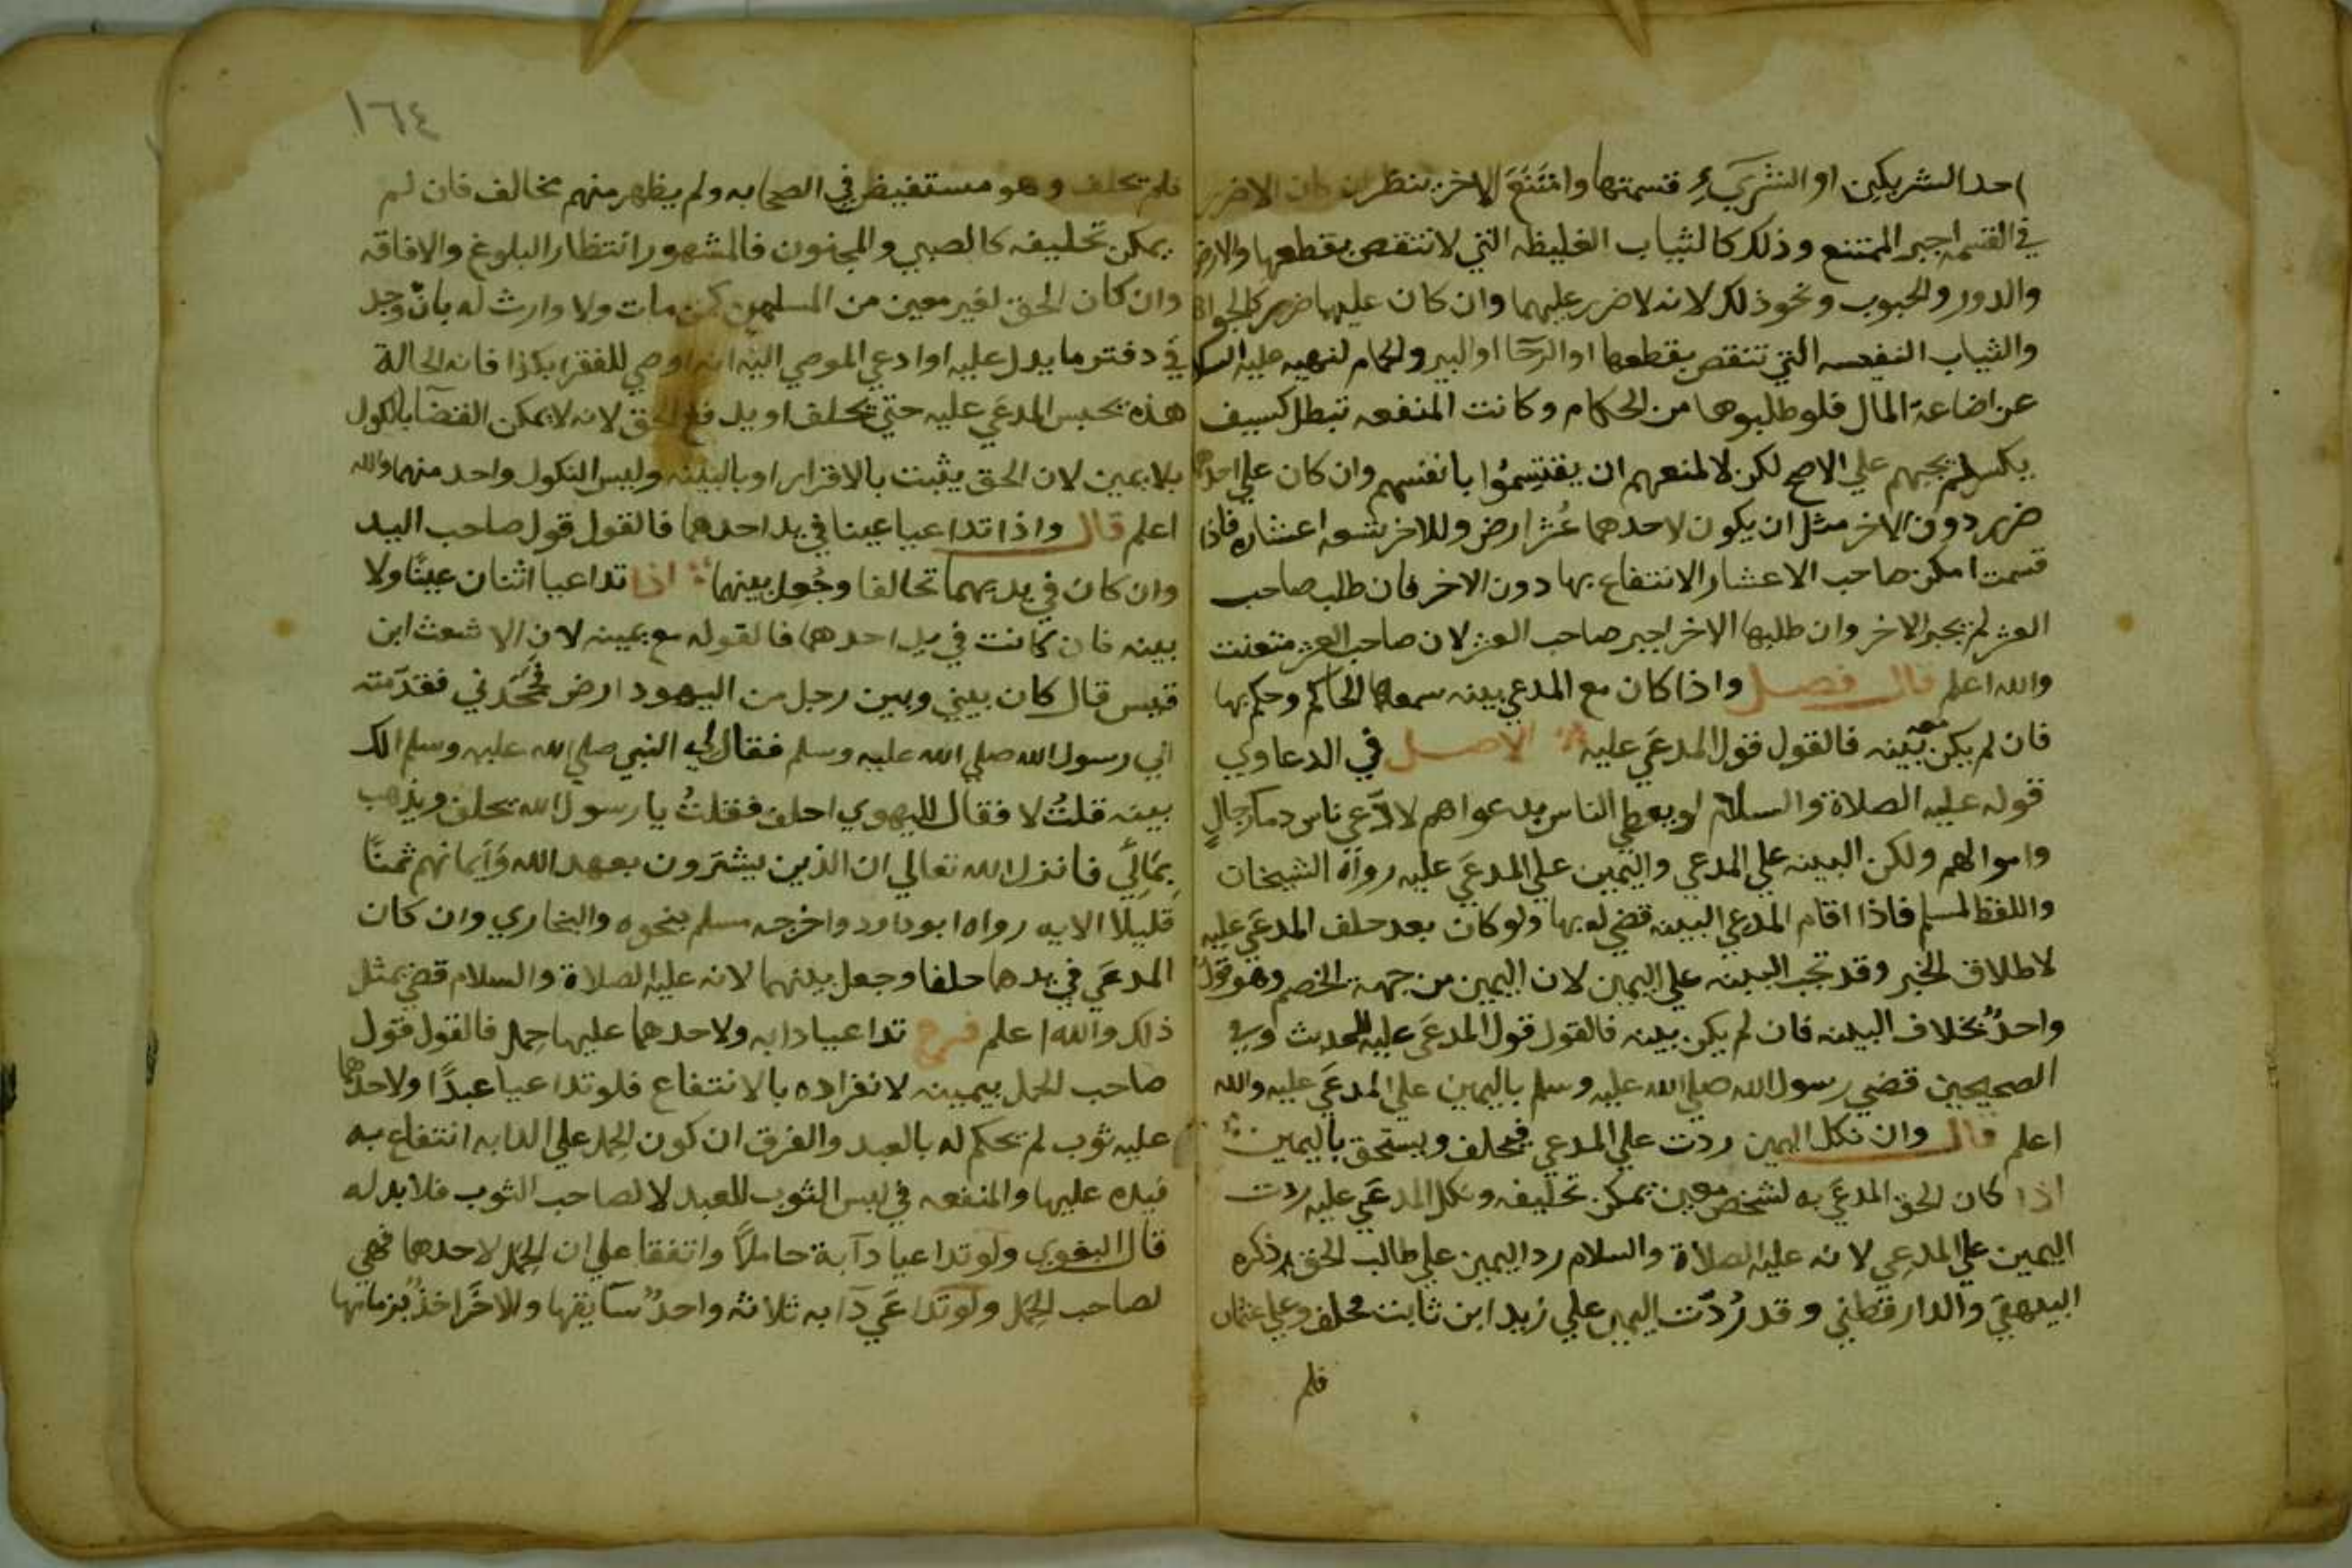 احد الشريكين او الشركاء قسمتها وامتنع الاخر ينظر ان كان لا ضرر
في القسمه اجبر الممتنع وذلك كالثياب الغليظه التي لا تنتقص بقطعها والارض
والدور والحبوب ونحو ذلك لانه لا ضرر عليهما وان كان عليهما ضرر كالجواهر
والثياب النفيسه التي تنتقص بقطعها او الرحا او البير والحمام لنهيه عليه السلام
عن اضاعة المال فلو طلبوها من الحكام وكانت المنفعه تبطل كسيف
يكسر لم يجبهم علي الاصح لكن لا لمنعهم ان يقتسموا بانفسهم وان كان علي احدهما
ضرر دون الاخر مثل ان يكون لاحدهما عشر ارض وللاخر تسعه اعشاره فاذا
قسمت امكن صاحب الاعشار الانتفاع بها دون الاخر فان طلب صاحب
العشر لم يجبر الاخر وان طلبها الاخر اجبر صاحب العشر لان صاحب العشر متعنت
والله اعلم قال فصل واذا كان مع المدعي بينه سمعها الحاكم وحكم بها
فان لم يكن معه بينه فالقول قول المدعَي عليه الاصل في الدعاوي
قوله عليه الصلاة والسلام لو يعطي الناس بدعواهم لادّعي ناس دماء رجالٍ
واموالهم ولكن البينه علي المدعي واليمين علي المدعَي عليه رواه الشيخان
واللفظ لمسلم فاذا اقام المدعي البينه قضي له بها ولو كان بعد حلف المدعَي عليه
لاطلاق الخبر وقد تجب البينه علي اليمين لان اليمين من جهة الخصم وهو قول
واحدٌ بخلاف البينه فان لم يكن بينه فالقول قول المدعَي عليه للحديث وفي
الصحيحين قضي رسول الله صلي الله عليه وسلم باليمين علي المدعَي عليه والله
اعلم قال وان نكل اليمين ردت علي المدعي فيحلف ويستحق باليمين
اذا كان الحق المدعَي به لشخص معين يمكن تحليفه ونكل المدعَي عليه ردت
اليمين علي المدعي لانه عليه الصلاة والسلام رد اليمين علي طالب الحق ذكره
البيهقي والدارقطني وقد رُدّت اليمين علي زيد ابن ثابت فحلف وعلي عثمان
فلم
١٦٤
فلم تحلف وهو مستفيض في الصحابه ولم يظهر منهم مخالف فان لم
يمكن تحليفه كالصبي والمجنون فالمشهور انتظار البلوغ والافاقه
وان كان الحق لغير معين من المسلمين كمن مات ولا وارث له بان وجد
في دفتر ما يدل عليه او ادعي الموصي اليه انه اوصي للفقرا بكذا فانه الحالة
هذه يحبس المدعَي عليه حتي يحلف او يدفع الحق لانه لا يمكن القضا بالنكول
بلا يمين لان الحق يثبت بالاقرار او بالبينه وليس النكول واحد منهما والله
اعلم قال واذا تداعيا عينا في يد احدهما فالقول قول صاحب اليد
وان كان في يديهما تحالفا وجُعل بينهما اذا تداعيا اثنان عينًا ولا
بينه فان كانت في يد احدهما فالقوله مع يمينه لان الاشعث ابن
قيس قال كان بيني وبين رجل من اليهود ارض فجحدني فقدّمته
الي رسول الله صلي الله عليه وسلم فقال لي النبي صلي الله عليه وسلم الك
بينه قلتُ لا فقال لليهودي احلف فقلتُ يا رسول الله يحلف ويذهب
بمالي فانزل الله تعالي ان الذين يشترون بعهد الله وايمانهم ثمنًا
قليلا الايه رواه ابو داود واخرجه مسلم بنحوه والبخاري وان كان
المدعَي في يدهما حلفا وجعل بينهما لانه عليه الصلاة والسلام قضي بمثل
ذلك والله اعلم فرع تداعيا دابه ولاحدهما عليها حِمل فالقول قول
صاحب الحمل بيمينه لانفراده بالانتفاع فلو تداعيا عبدًا ولاحدهما
عليه ثوب لم يحكم له بالعبد والفرق ان كون الحِمل علي الدابه انتفاع به
فيده عليها والمنفعه في لبس الثوب للعبد لا لصاحب الثوب فلا يد له
قال البغوي ولو تداعيا دآبة حاملاً واتفقا علي ان الحمل لاحدهما فهي
لصاحب الحمل ولو تداعَي دآبه ثلاثه واحدٌ سآيقها والاخر اخذٌ بزمامها